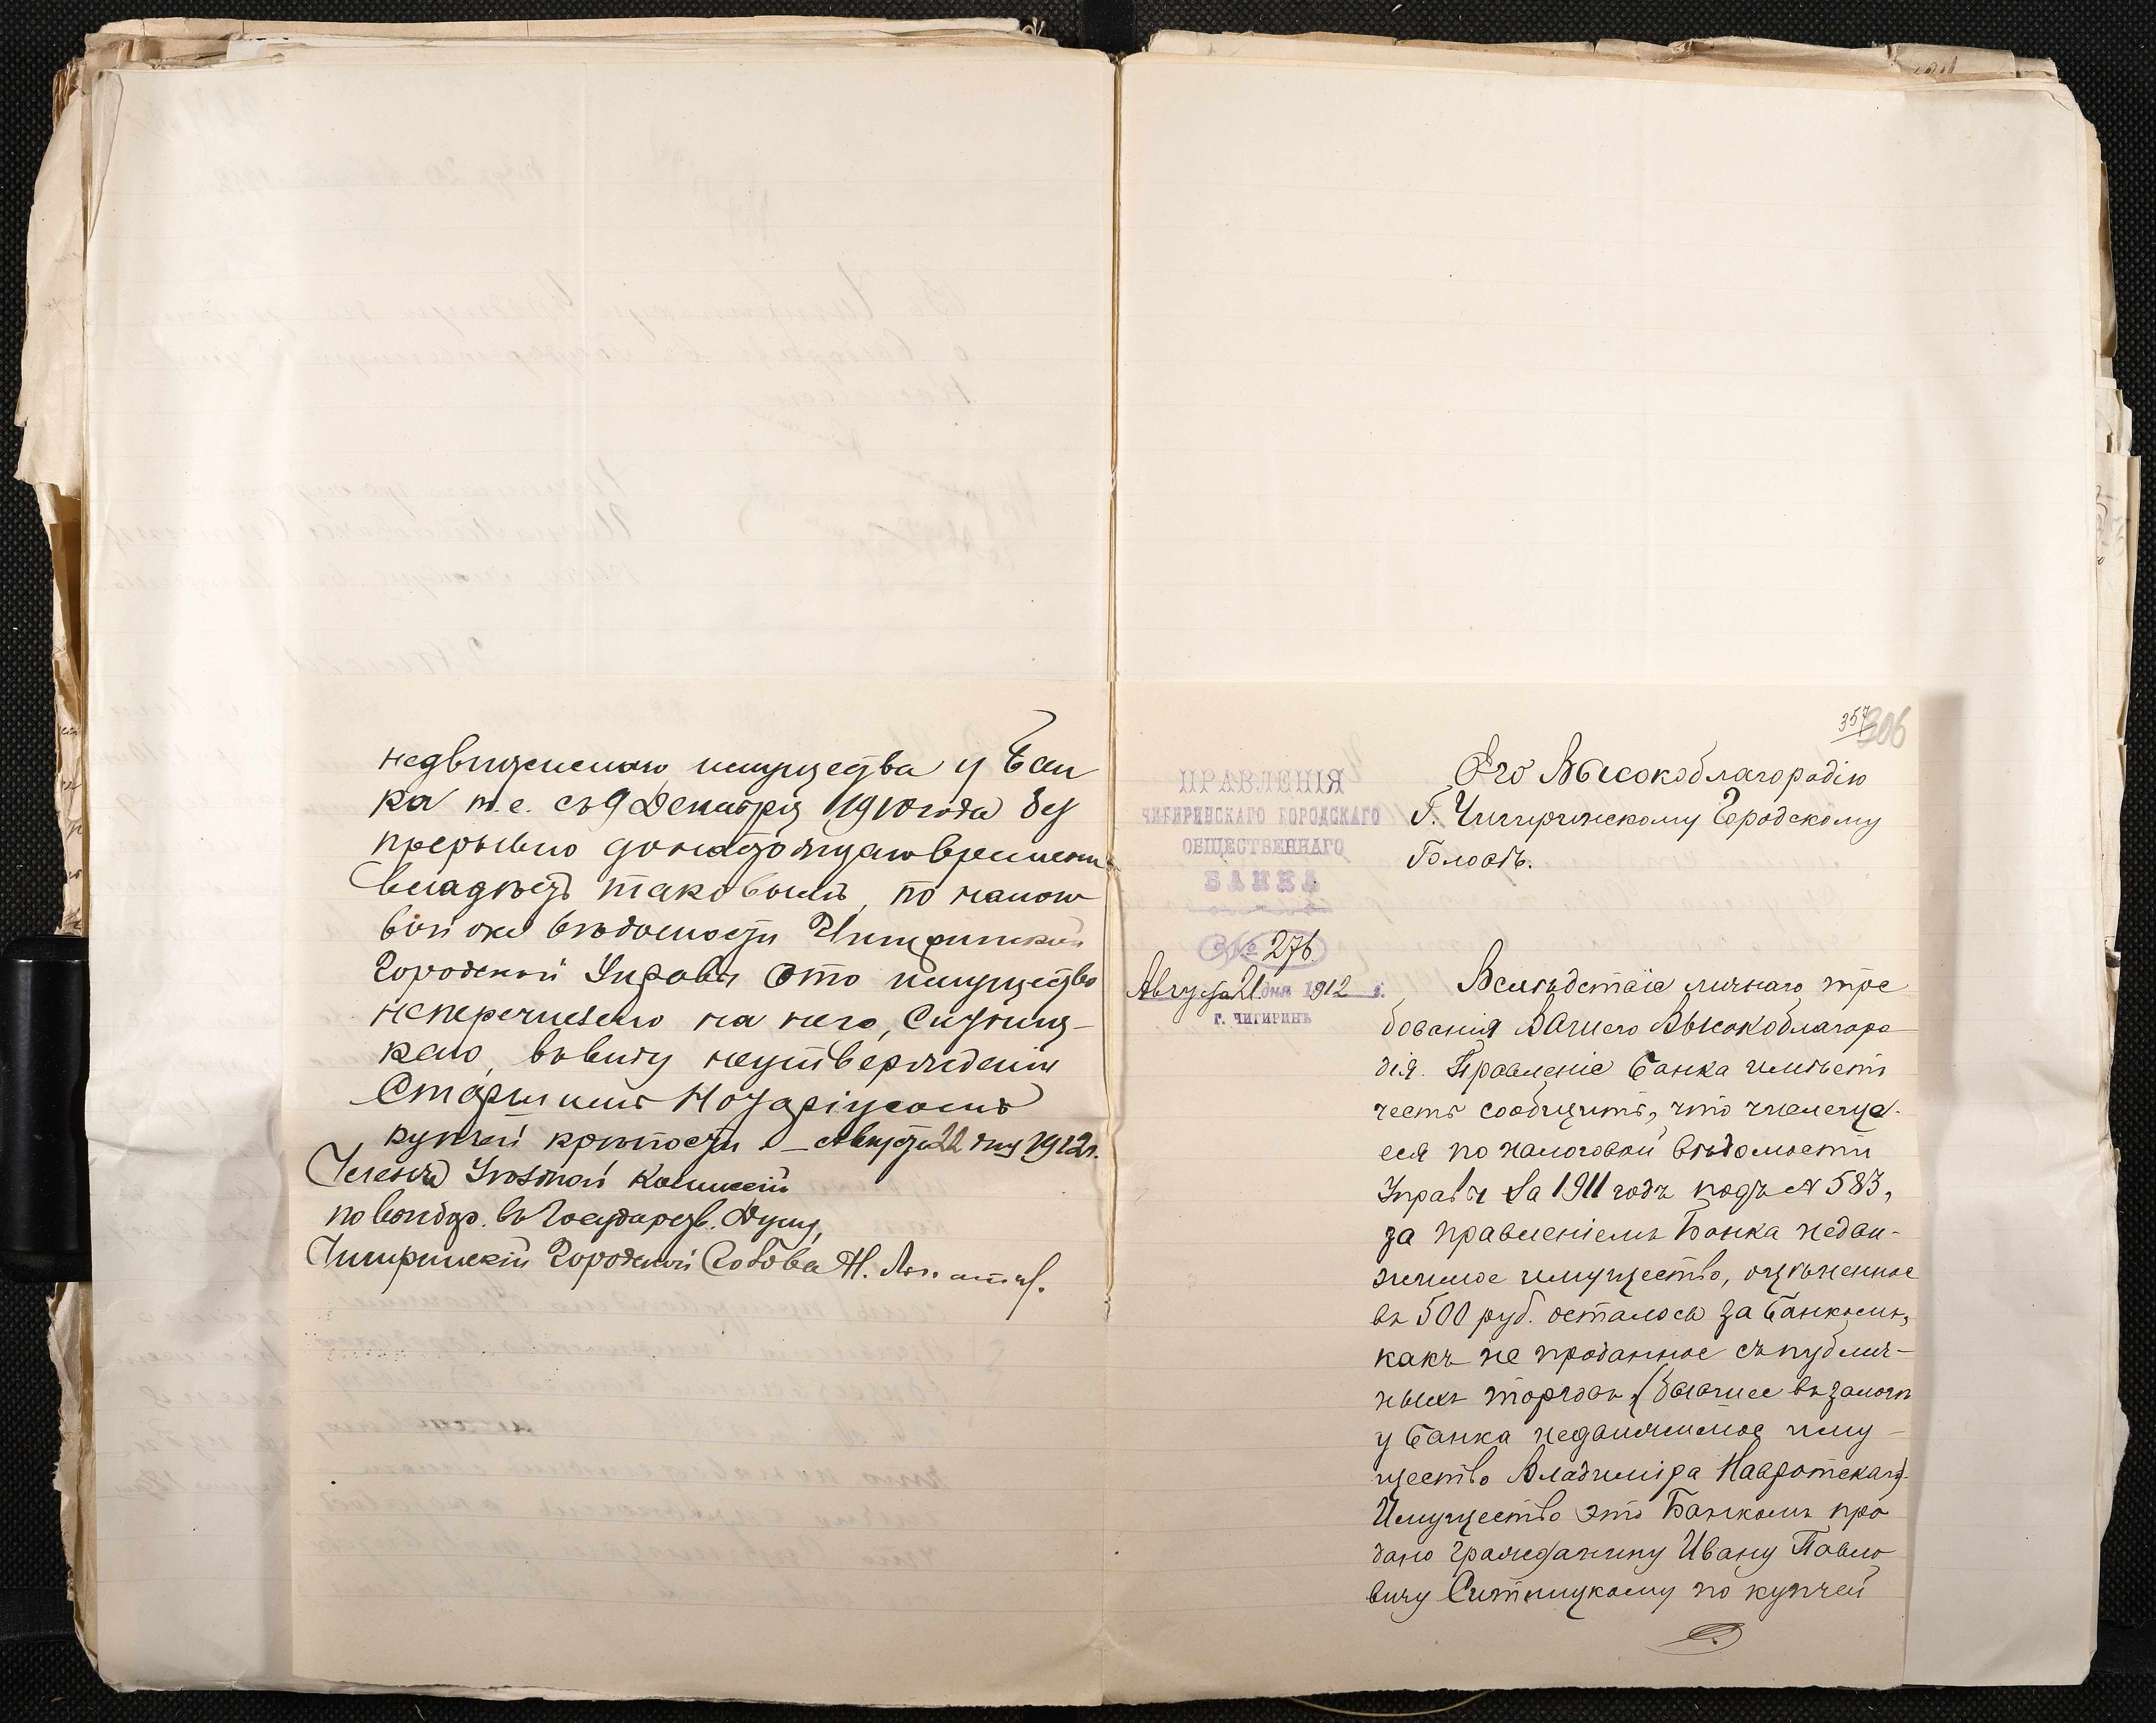 недвижимаго имущества у Бан
ка т.е. съ 9 Декабря 1910 года без
прерывно до настоящаго времени
владѣетъ таковымъ, по налого
вой же вѣдомости Чигиринской
Городской Управы это имущество
неперечислено на него, Ситниц-
каго, ввиду неутвержденія
Старшимъ Нотаріусомъ
купчей крѣпости – Августа 22 дня 1912 г.
Членъ Уѣздной Коммисіи
по выбор. въ Государств. Думу,
Чигиринскій Городской Голова Н.
357
306
ПРАВЛЕНІЯ
ЧИГИРИНСКАГО ГОРОДСКАГО
ОБЩЕСТВЕННАГО
БАНКА
№ 276
Августа 21 дня 1912 г.
г. ЧИГИРИНЪ
Его Высокоблагородію
Г. Чигиринскому Городскому
Головѣ.
Вслѣдствіе личнаго тре
бованія Вашего Высокоблагоро
дія. Правленіе Банка имѣетъ
честь сообщить, что числяще
еся по налоговой вѣдомости
Управы за 1911 годъ подъ № 583,
за правленіемъ Банка недви-
жимое имущество, оцѣненное
въ 500 руб. осталось за Банкомъ,
какъ не проданное съ публич-
ныхъ торговъ, (бывшее въ залогѣ
у Банка недвижимое иму-
щество Владиміра Навротскаго).
Имущество это Банкомъ про
дано гражданину Ивану Павло
вичу Ситницкому по купчей